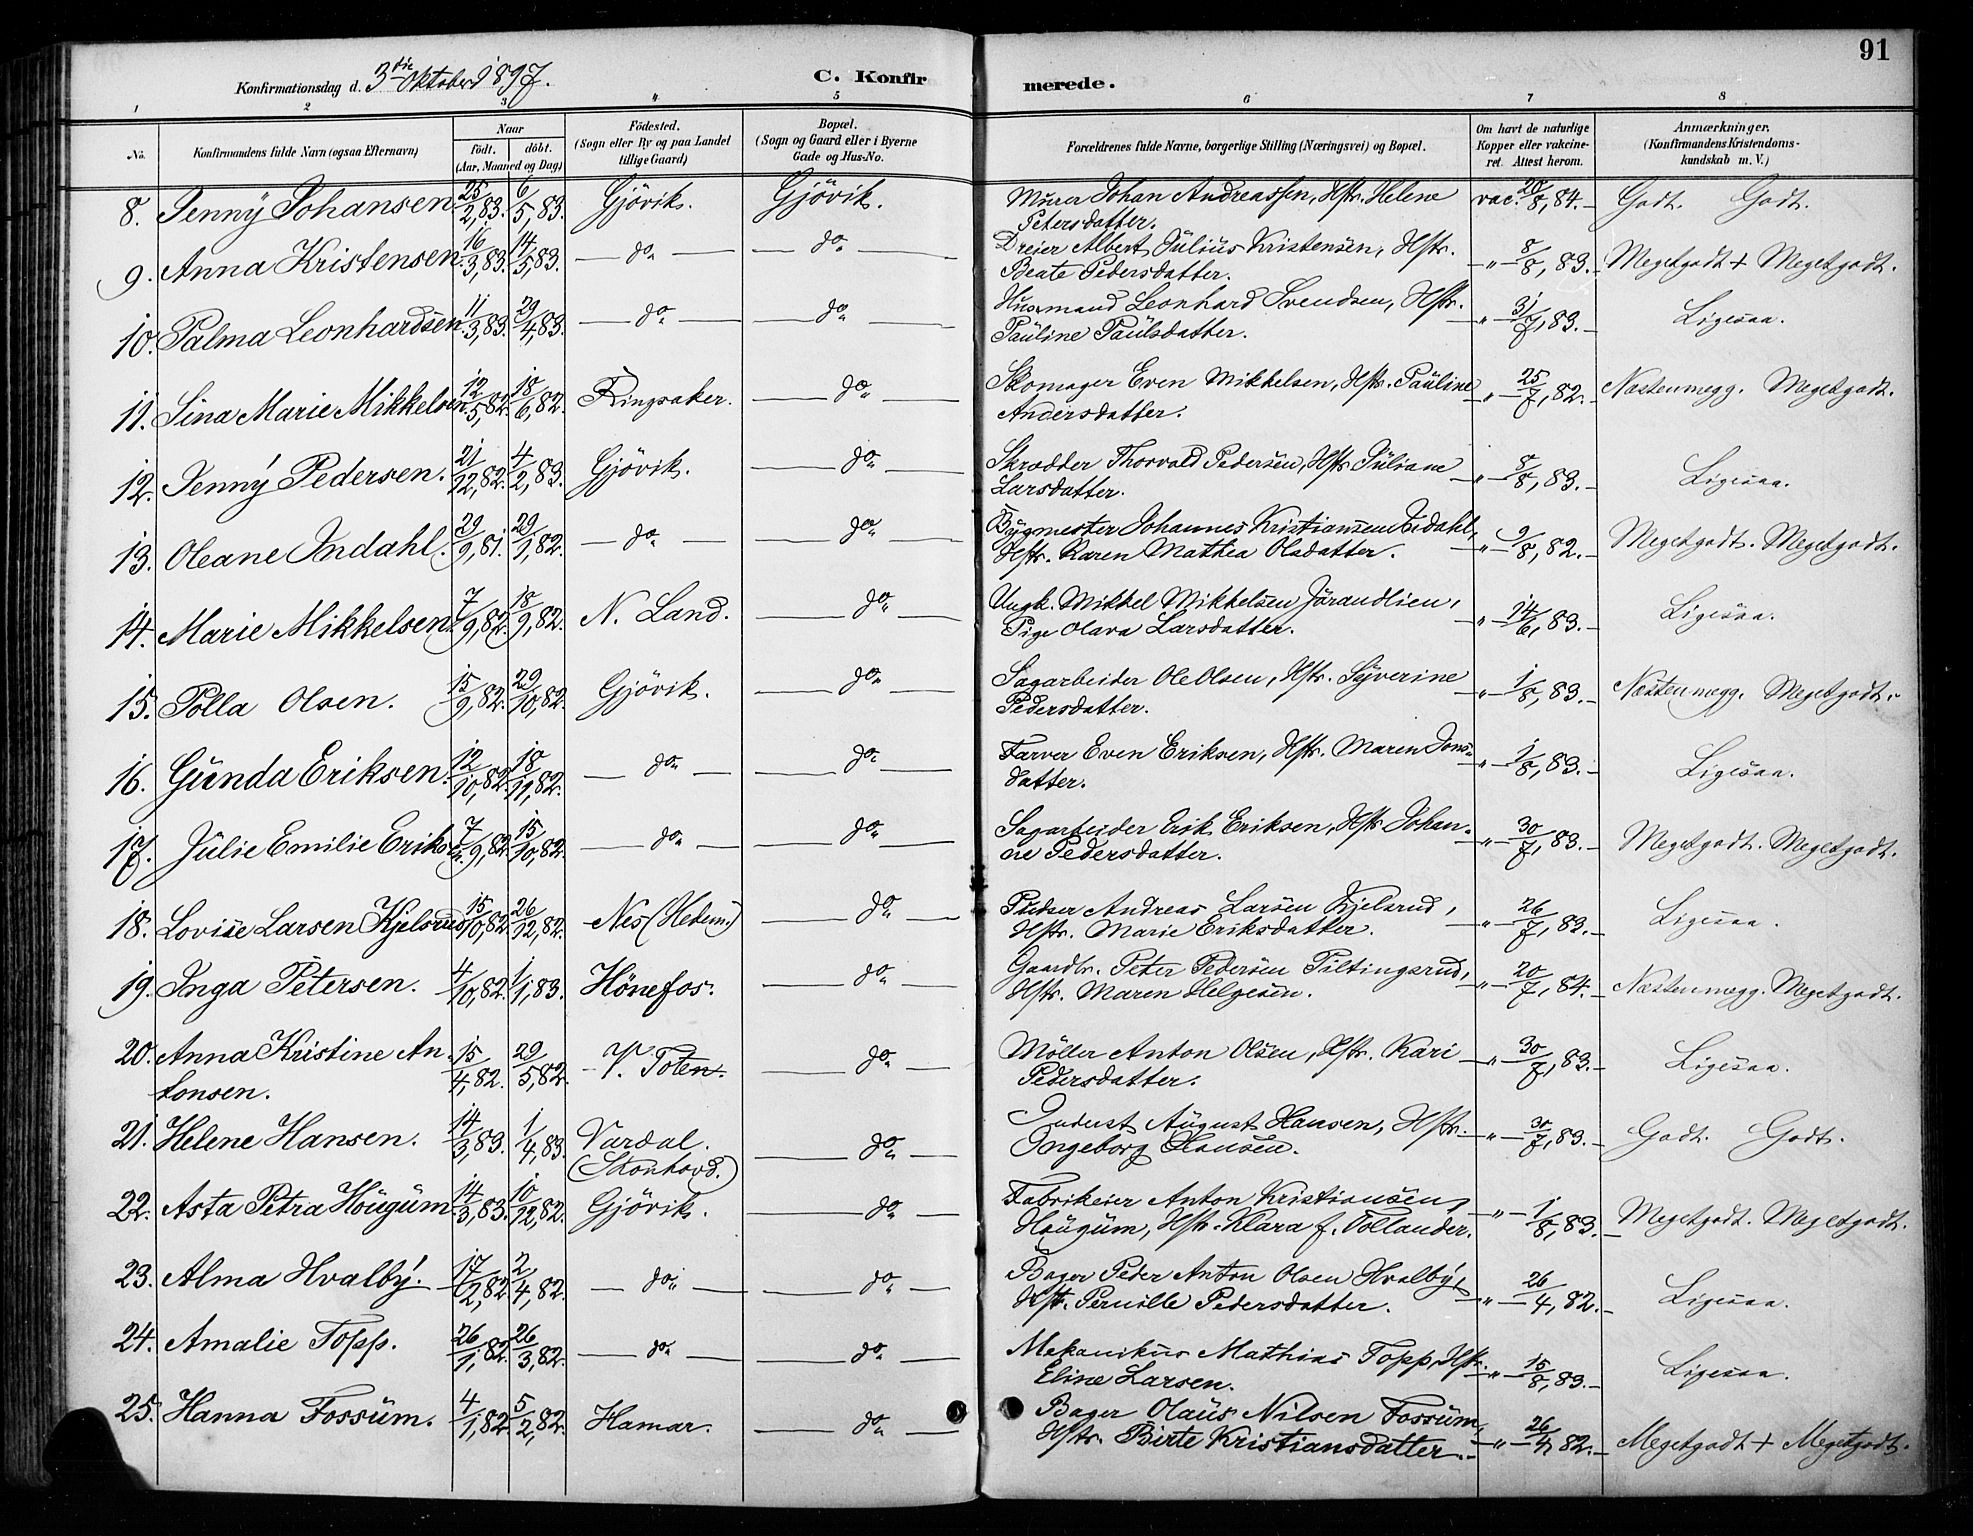 91
Konfirmationsdag d. 3die Oktober 1897.
C. Konfirmerede.
1 2 3 4 5 6 7 8
No.
Konfirmandens fulde Navn (ogsaa Efternavn)
Naar
født. døbt.
(Aar, Maaned og Dag)
Fødested.
(Sogn eller By og paa Landet
tillige Gaard)
Bopæl.
(Sogn og Gaard eller i Byerne
Gade og Hus-No.
Forældrenes fulde Navne, borgerlige Stilling (Næringsvei) og Bopæl.
Om havt de naturlige
Kopper eller vakcine-
ret. Attest herom.
Anmærkninger.
(Konfirmandens Kristendoms-
kundskab m. V.)
8. Jenny Johansen 25/2,83. 6/5,83. Gjövik. Gjövik. Murer Johan Andreassen, Hstr. Helene vac. 20/8,84. Godt. Godt.
Petersdatter.
9. Anna Kristensen 16/3,83. 14/5,83. do do Dreier Albert Julius Kristensen, Hstr. " 8/8,83. Megetgodt + Megetgodt.
Beate Pedersdatter.
10. Palma Leonhardsen 11/3,83. 29/4,83. do do Husmand Leonhard Svendsen, Hstr. " 31/7,83. Ligesaa.
Pauline Paulsdatter.
11. Lina Marie Mikkelsen 12/5,82. 18/6,82. Ringsaker. do Skomager Even Mikkelsen, Hstr. Pauline " 25/7,82. Næstenmegg. Megetgodt.
Andersdatter.
12. Jenny Pedersen. 21/12,82. 4/2,83. Gjövik. do Skrædder Thorvald Pedersen, Hstr. Juliane " 8/8,83. Ligesaa.
Larsdatter.
13. Oleane Indahl. 29/9,81. 29/1,82. do do Bygmester Johannes Kristiansen Indahl, " 9/8,82. Megetgodt. Megetgodt.
Hstr. Karen Mathea Olsdatter.
14. Marie Mikkelsen 7/9,82. 18/9,82. N. Land. do Ungk. Mikkel Mikkelsen Jörandlien, " 14/6,83. Ligesaa.
Pige Olava Larsdatter.
15. Polla Olsen. 15/9,82. 29/10,82. Gjövik. do Sagarbeider Ole Olsen, Hstr. Syverine " 1/8,83. Næstenmegg. Megetgodt.
Pedersdatter.
16. Gunda Eriksen. 12/10,82. 18/11,82. do do Farver Even Eriksen, Hstr. Maren Jons- " 1/8,83. Ligesaa.
datter.
17. Julie Emilie Eriksen. 7/9,82. 15/10,82. do do Sagarbeider Erik Eriksen, Hstr. Johan- " 30/7,83. Megetgodt. Megetgodt.
ne Pedersdatter.
18. Lovise Larsen Kjelsrud 15/10,82. 26/12,82. Nes (Hedem.) do Pudser Andreas Larsen Kjelsrud, " 26/7,83. Ligesaa.
Hstr. Marie Eriksdatter.
19. Inga Petersen. 4/10,82. 1/1,83. Hönefos. do Gaardbr. Peter Pedersen Piltingsrud, " 20/7,84. Næstenmegg. Megetgodt.
Hstr. Maren Helgesen.
20. Anna Kristine An- 15/4,82. 29/5,82. V. Toten. do Möller Anton Olsen, Hstr. Kari " 30/7,83. Ligesaa.
tonsen. Pedersdatter.
21. Helene Hansen. 14/3,83. 1/4,83. Vardal. do Indust August Hansen, Hstr. " 30/7,83. Godt. Godt.
(Skonhovd.) Ingeborg Hansen.
22. Asta Petra Hougum 14/3,83. 10/12,82. Gjövik. do Fabrikeier Anton Kristiansen " 1/8,83. Megetgodt. Megetgodt.
Hougum, Hstr. Klara f. Tollander.
23. Alma Hvalby. 17/2,82. 2/4,82. do do Bager Peder Anton Olsen Hvalby, " 26/4,82. Ligesaa.
Hstr. Pernille Pedersdatter.
24. Amalie Topp. 26/1,82. 26/3,82. do do Mekanikus Mathias Topp, Hstr. " 15/8,83. Ligesaa.
Eline Larsen.
25. Hanna Fossum. 4/1,82. 5/2,82. Hamar. do Bager Olaus Nilsen Fossum, " 26/4,82. Megetgodt + Megetgodt.
Hstr. Birte Kristiansdatter.